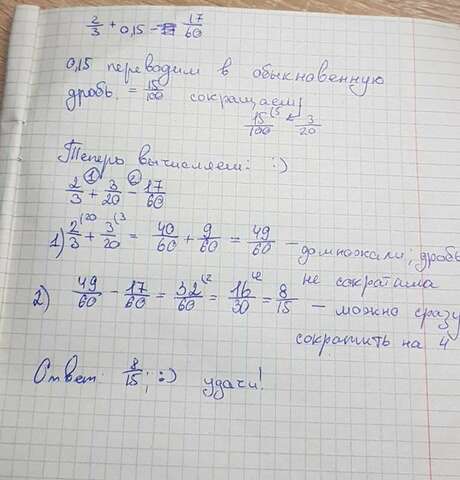 2/3 + 0,15 - 17/60
0,15 переводим в обыкновенную
дробь. = 15/100 сокращаем
15/100 (5 3/20
Теперь вычисляем: :)
① ②
2/3 + 3/20 - 17/60
1) 2/3 (20 + 3/20 (3 = 40/60 + 9/60 = 49/60 - домножали, дробь
не сократима
2) 49/60 - 17/60 = 32/60 (2 = 16/30 (2 = 8/15 - можно сразу
сократить на 4
Ответ: 8/15; :) удачи!